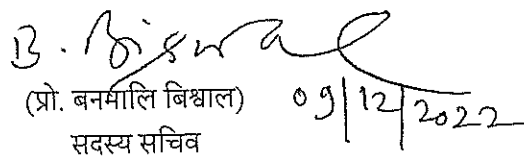 B. Biswal
(प्रो. बनमालि बिश्वाल) 09/12/2022
सदस्य सचिव